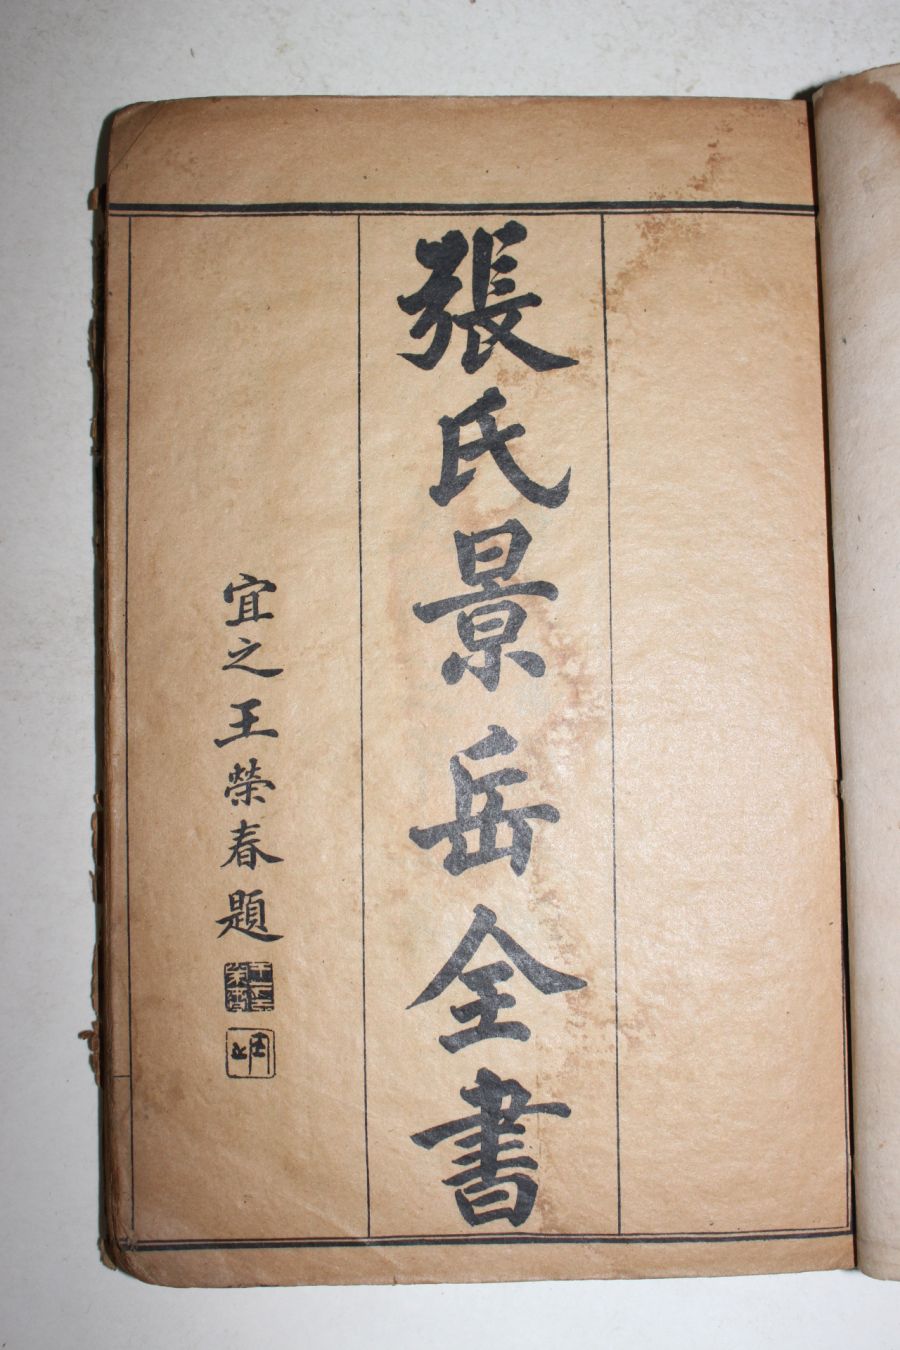 張氏景岳全書
宜之王榮春題